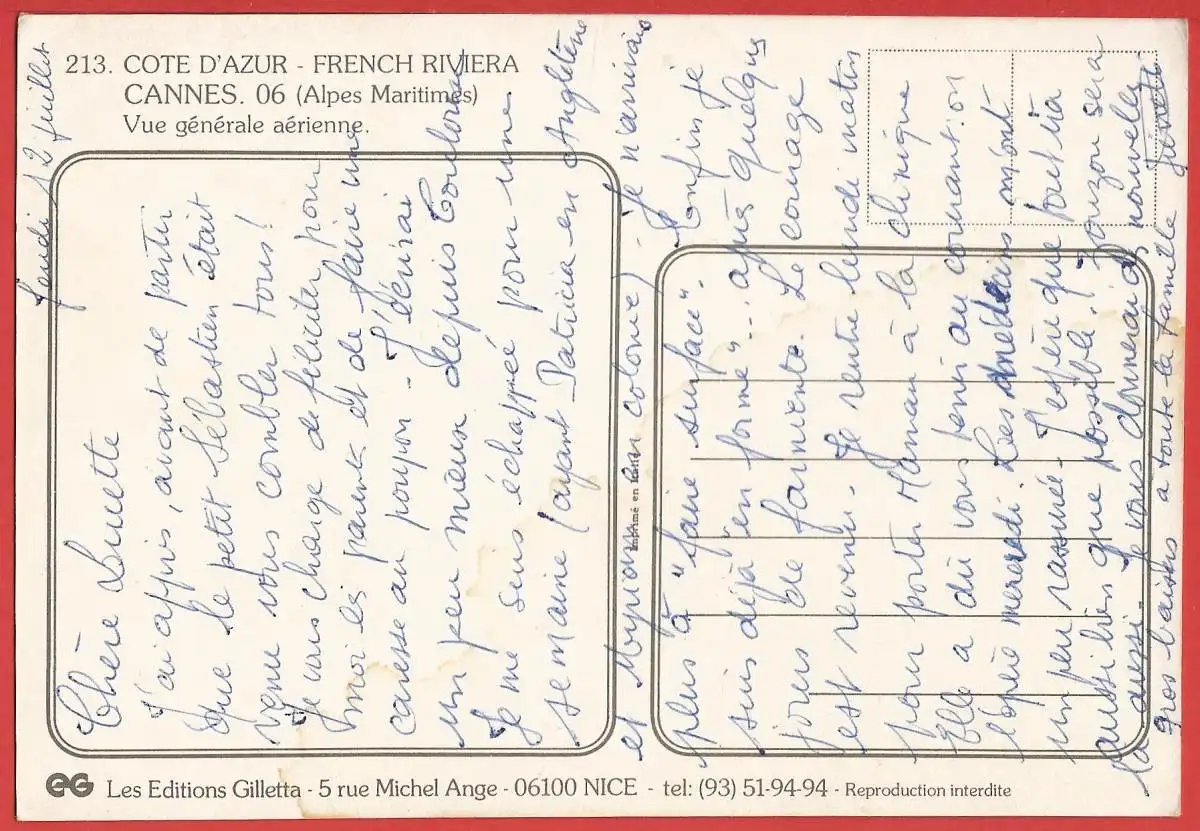 213. COTE D'AZUR - FRENCH RIVIERA
CANNES. 06 (Alpes Maritimes)
Vue générale aérienne.
Jeudi 12 juillet
Chère Lucette
J'ai appris, avant de partir
que le petit Sébastien était
venu vous combler tous!
Je vous charge de féliciter pour
moi les parents et de faire une
caresse au poupon - J'écrirai
un peu mieux depuis Toulouse
Je me suis échappée pour une
semaine (ayant Patricia en Angleterre
et Myriam en colonie) - Je n'arrivais
plus à "faire surface". Enfin je
suis déjà "en forme"... après quelques
jours de farniente. Le courage
est revenu. Je rentre lundi matin
pour porter Maman à la clinique
Elle a dû vous tenir au courant on
l'opère mercredi. Les médecins m'ont
un peu rassurée - J'espère que tout ira
aussi bien que possible. sera
là aussi - Je vous donnerai des nouvelles
gros baisers à toute la famille
Imprimé en
EG Les Editions Gilletta - 5 rue Michel Ange - 06100 NICE - tel: (93) 51-94-94 - Reproduction interdite